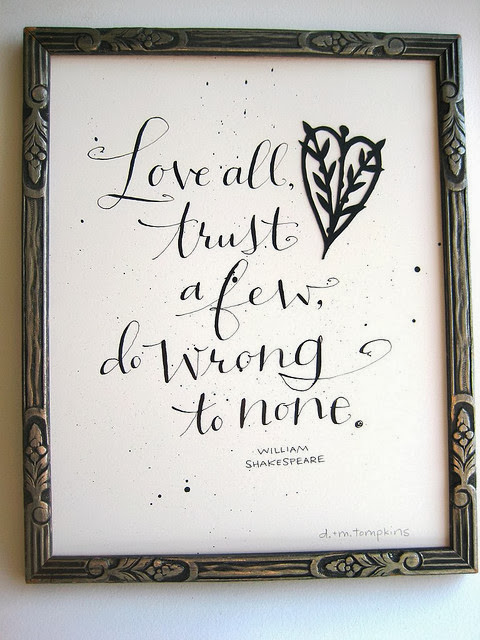 Love all,
trust
a few,
do wrong
to none.
WILLIAM
SHAKESPEARE
d.+m.tompkins